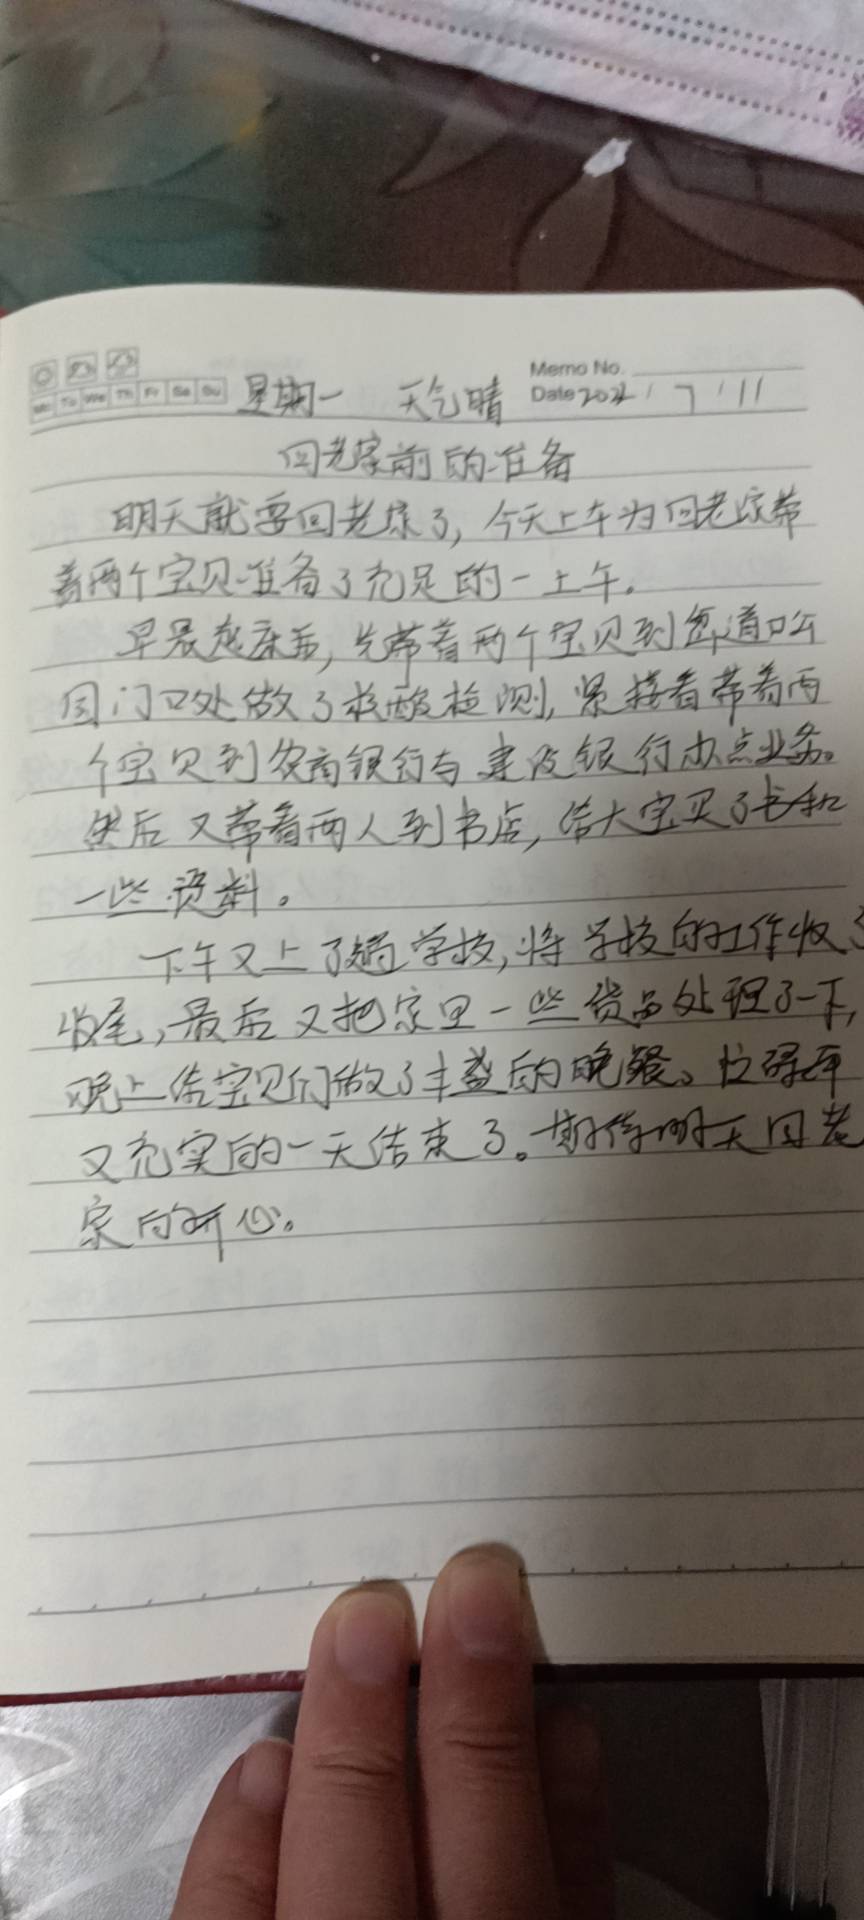 Memo No.
Mo Tu We Th Fr Sa Su 星期一 天气晴 Date 2022 / 7 / 11
回老家前的准备
明天就要回老家了,今天上午为回老家带
着两个宝贝准备了充足的一上午。
早晨起床后,先带着两个宝贝到街道口公
园门口处做了核酸检测,紧接着带着两
个宝贝到农商银行与建设银行办点业务。
然后又带着两人到书店,给大宝买了书和
一些资料。
下午又上了趟学校,将学校的工作收了
收尾,最后又把家里一些货品处理了一下,
晚上给宝贝们做了丰盛的晚餐。忙碌
又充实的一天结束了。期待明天回老
家的开心。